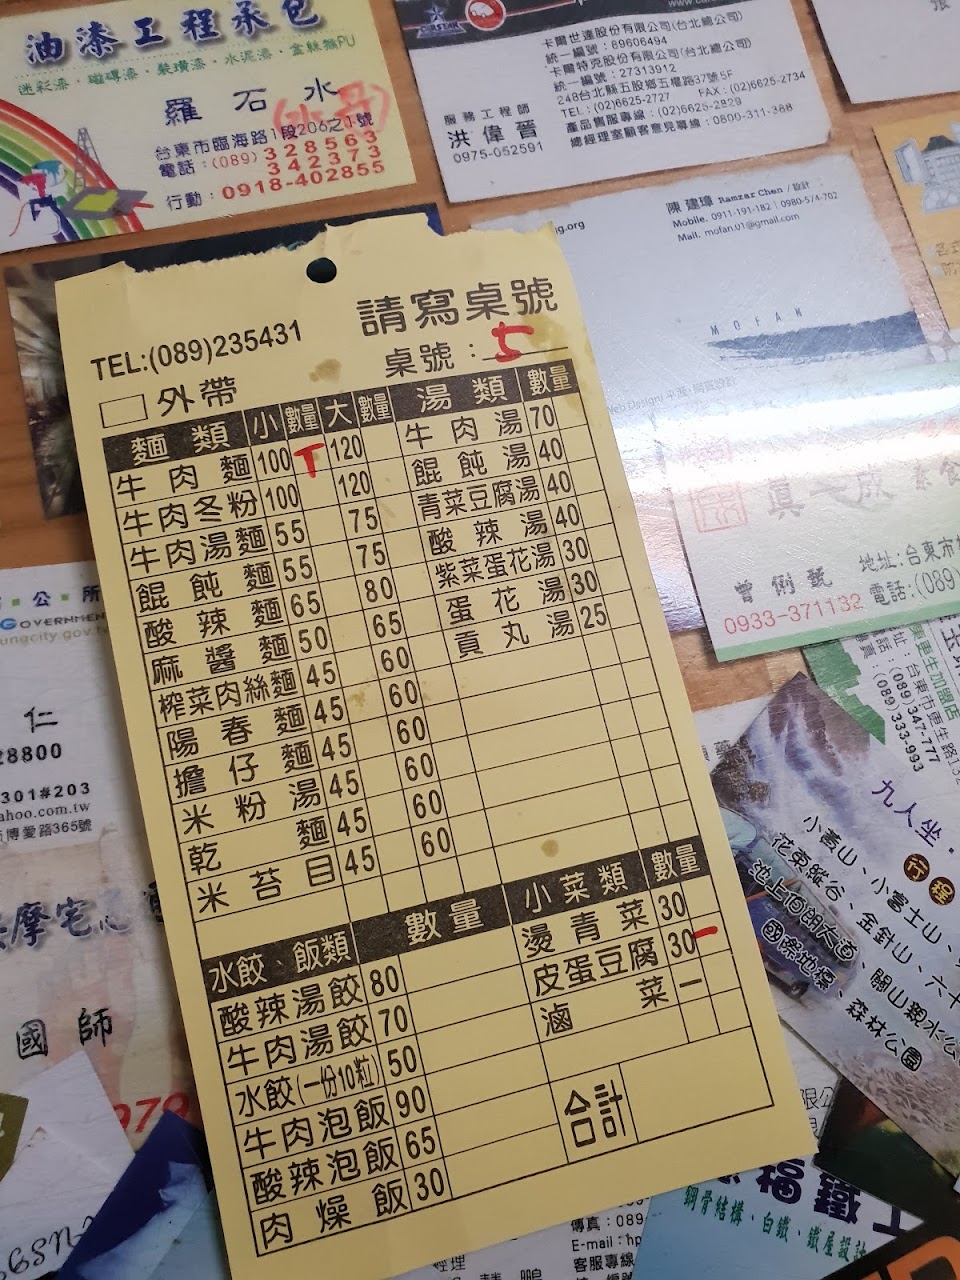 油漆工程承包
迷彩漆・磁磚漆・裝璜漆・水泥漆・金絲猴PU
羅石水
台東市臨海路1段206之1號
電話：(089)328563
342373
行動：0918-402855
卡爾世達股份有限公司(台北總公司)
統一編號：89606494
卡爾特克股份有限公司(台北總公司)
統一編號：27313912
248台北縣五股鄉五權路37號5F
TEL：(02)6625-2727 FAX：(02)6625-2734
產品售服專線：(02)6625-2829
總經理室顧客意見專線：0800-311-388
服務工程師
洪偉晉
0975-052591
陳建瑋 Ramzar Chen / 設計
Mobile. 0911-191-182
Mail. mofan.01@gmail.com
MOFAN
請寫桌號
TEL:(089)235431
桌號：5
外帶
麵類 小 數量 大 數量
牛肉麵 100 T 120
牛肉冬粉 100 120
牛肉湯麵 55 75
餛飩麵 55 75
酸辣麵 65 80
麻醬麵 50 65
榨菜肉絲麵 45 60
陽春麵 45 60
擔仔麵 45 60
米粉湯 45 60
乾麵 45 60
米苔目 45 60
湯類 數量
牛肉湯 70
餛飩湯 40
青菜豆腐湯 40
酸辣湯 40
紫菜蛋花湯 30
蛋花湯 30
貢丸湯 25
水餃、飯類 數量
酸辣湯餃 80
牛肉湯餃 70
水餃(一份10粒) 50
牛肉泡飯 90
酸辣泡飯 65
肉燥飯 30
小菜類 數量
燙青菜 30
皮蛋豆腐 30 一
滷菜 一
合計
曾俐毓
0933-371132
地址:台東市
電話:(089)
更生加盟店
台東市更生路
(089)347-777
(089)333-993
九人坐
行程
花東縱谷、金針山、六十
池上伯朗大道、關山親水公
國祭地標、森林公園
公所
GOVERNMENT
ungcity.gov.tw
仁
28800
301#203
ahoo.com.tw
博愛路365號
摩宅
國師
979
經理
傳真：089
E-mail：hp
客服專線
鋼骨結構、白鐵、鐵屋設計